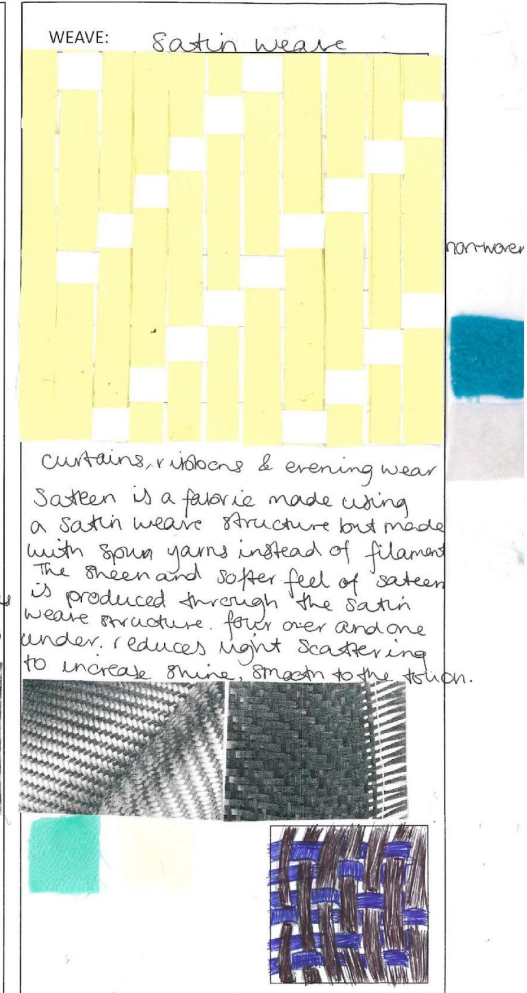 WEAVE: Satin weave
non-woven
curtains, ribbons & evening wear
Sateen is a fabric made using
a satin weave structure but made
with spun yarns instead of filament
The sheen and softer feel of sateen
is produced through the satin
weave structure. four over and one
under. reduces light scattering
to increase shine, smooth to the touch.